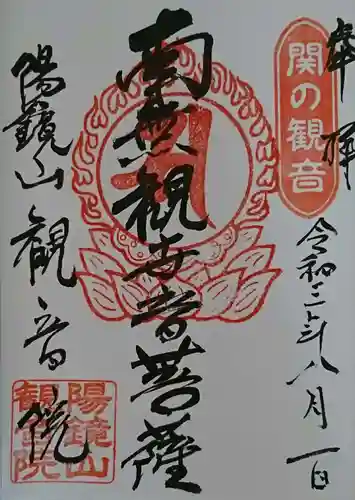 奉拝
関の観音
令和三年八月一日
南無観世音菩薩
陽鏡山観音院
陽鏡山
観音院